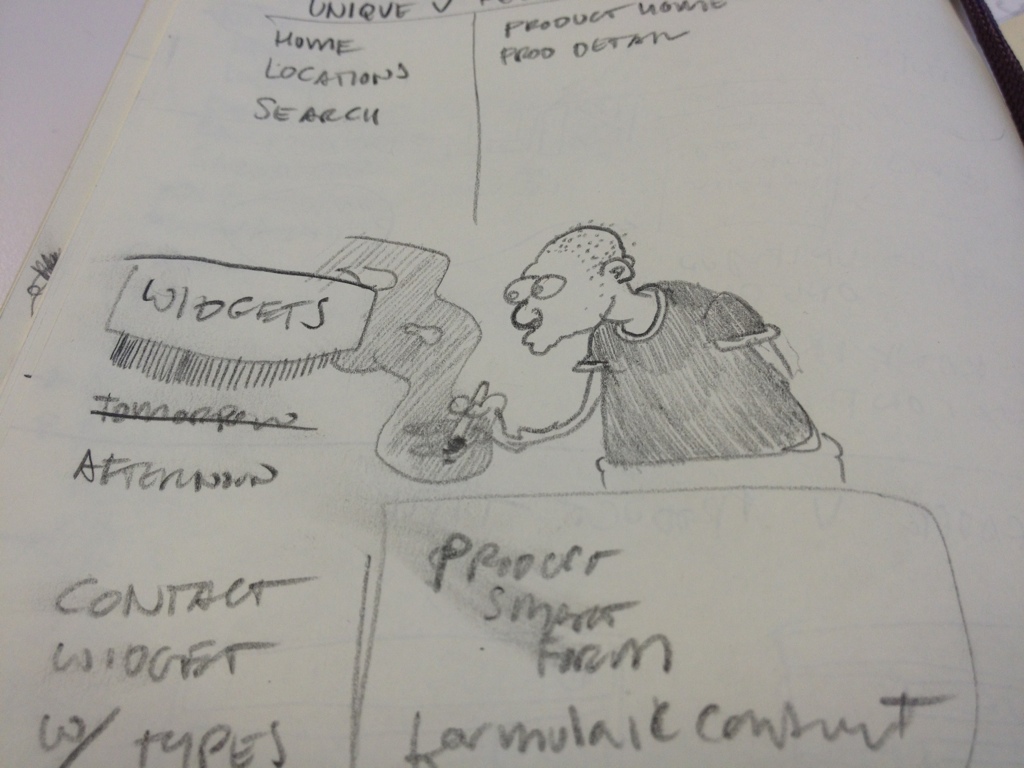 UNIQUE V
HOME
LOCATIONS
SEARCH
PRODUCT HOME
PROD DETAIL
WIDGETS
tomorrow
AFTERNOON
CONTACT
WIDGET
W/ TYPES
PRODUCT
SMART
FORM
formulaic